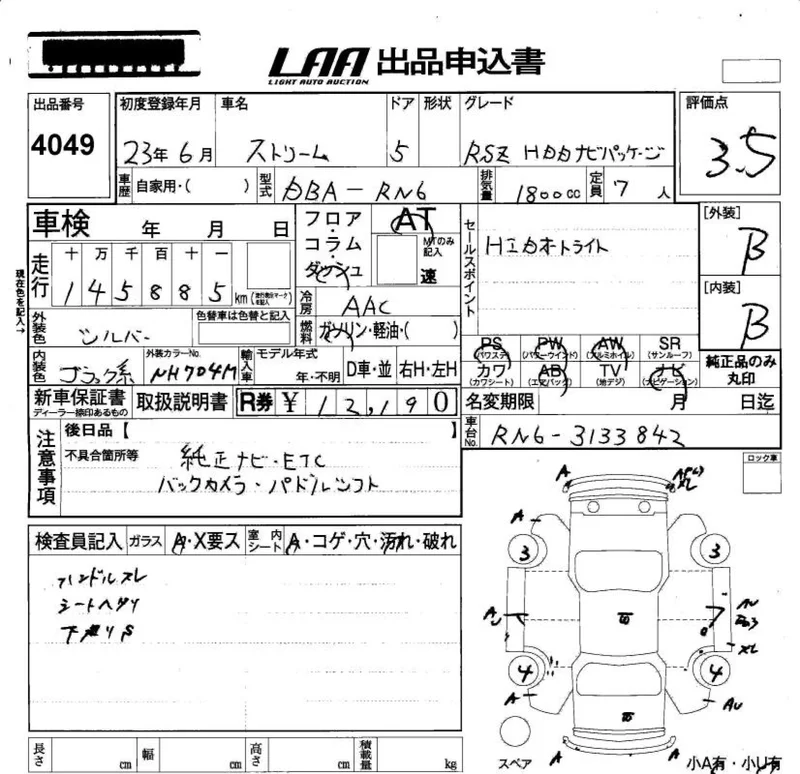 LAA 出品申込書
LIGHT AUTO AUCTION
出品番号 初度登録年月 車名 ドア 形状 グレード 評価点
4049 23年6月 ストリーム 5 RSZ HDDナビパッケージ 3.5
車歴 自家用・( ) 型式 DBA-RN6 排気量 1800cc 定員 7人
車検 年 月 日
フロア・コラム・ダッシュ
AT
MTのみ記入
速
セールスポイント
HIDオートライト
[外装]
B
[内装]
B
現在色を記入→
走行
十 万 千 百 十 一
1 4 5 8 8 5 km
冷房 AAC
外装色 シルバー 色替車は色替と記入
燃料 ガソリン・軽油・( )
内装色 ブラック系 外装カラーNo. NH704M 輸入車 モデル年式 年・不明 D車・並 右H・左H
PS (パワステ) PW (パワーウインド) AW (アルミホイル) SR (サンルーフ)
カワ (カワシート) AB (エアバッグ) TV (地デジ) ナビ (ナビゲーション)
純正品のみ丸印
新車保証書 ディーラー捺印あるもの 取扱説明書 R券 ¥ 12,190
名変期限 月 日迄
車台No. RN6-3133842
注意事項
後日品【 】
不具合箇所等 純正ナビ・ETC
バックカメラ・パドルシフト
ロック車
検査員記入 ガラス A・X要ス 室内シート A・コゲ・穴・汚れ・破れ
ハンドルスレ
シートヘタリ
下廻りS
A
A
A
3 3
4 4
A
AU
A A
スペア
小A有・小U有
長さ cm 幅 cm 高さ cm 積載量 kg